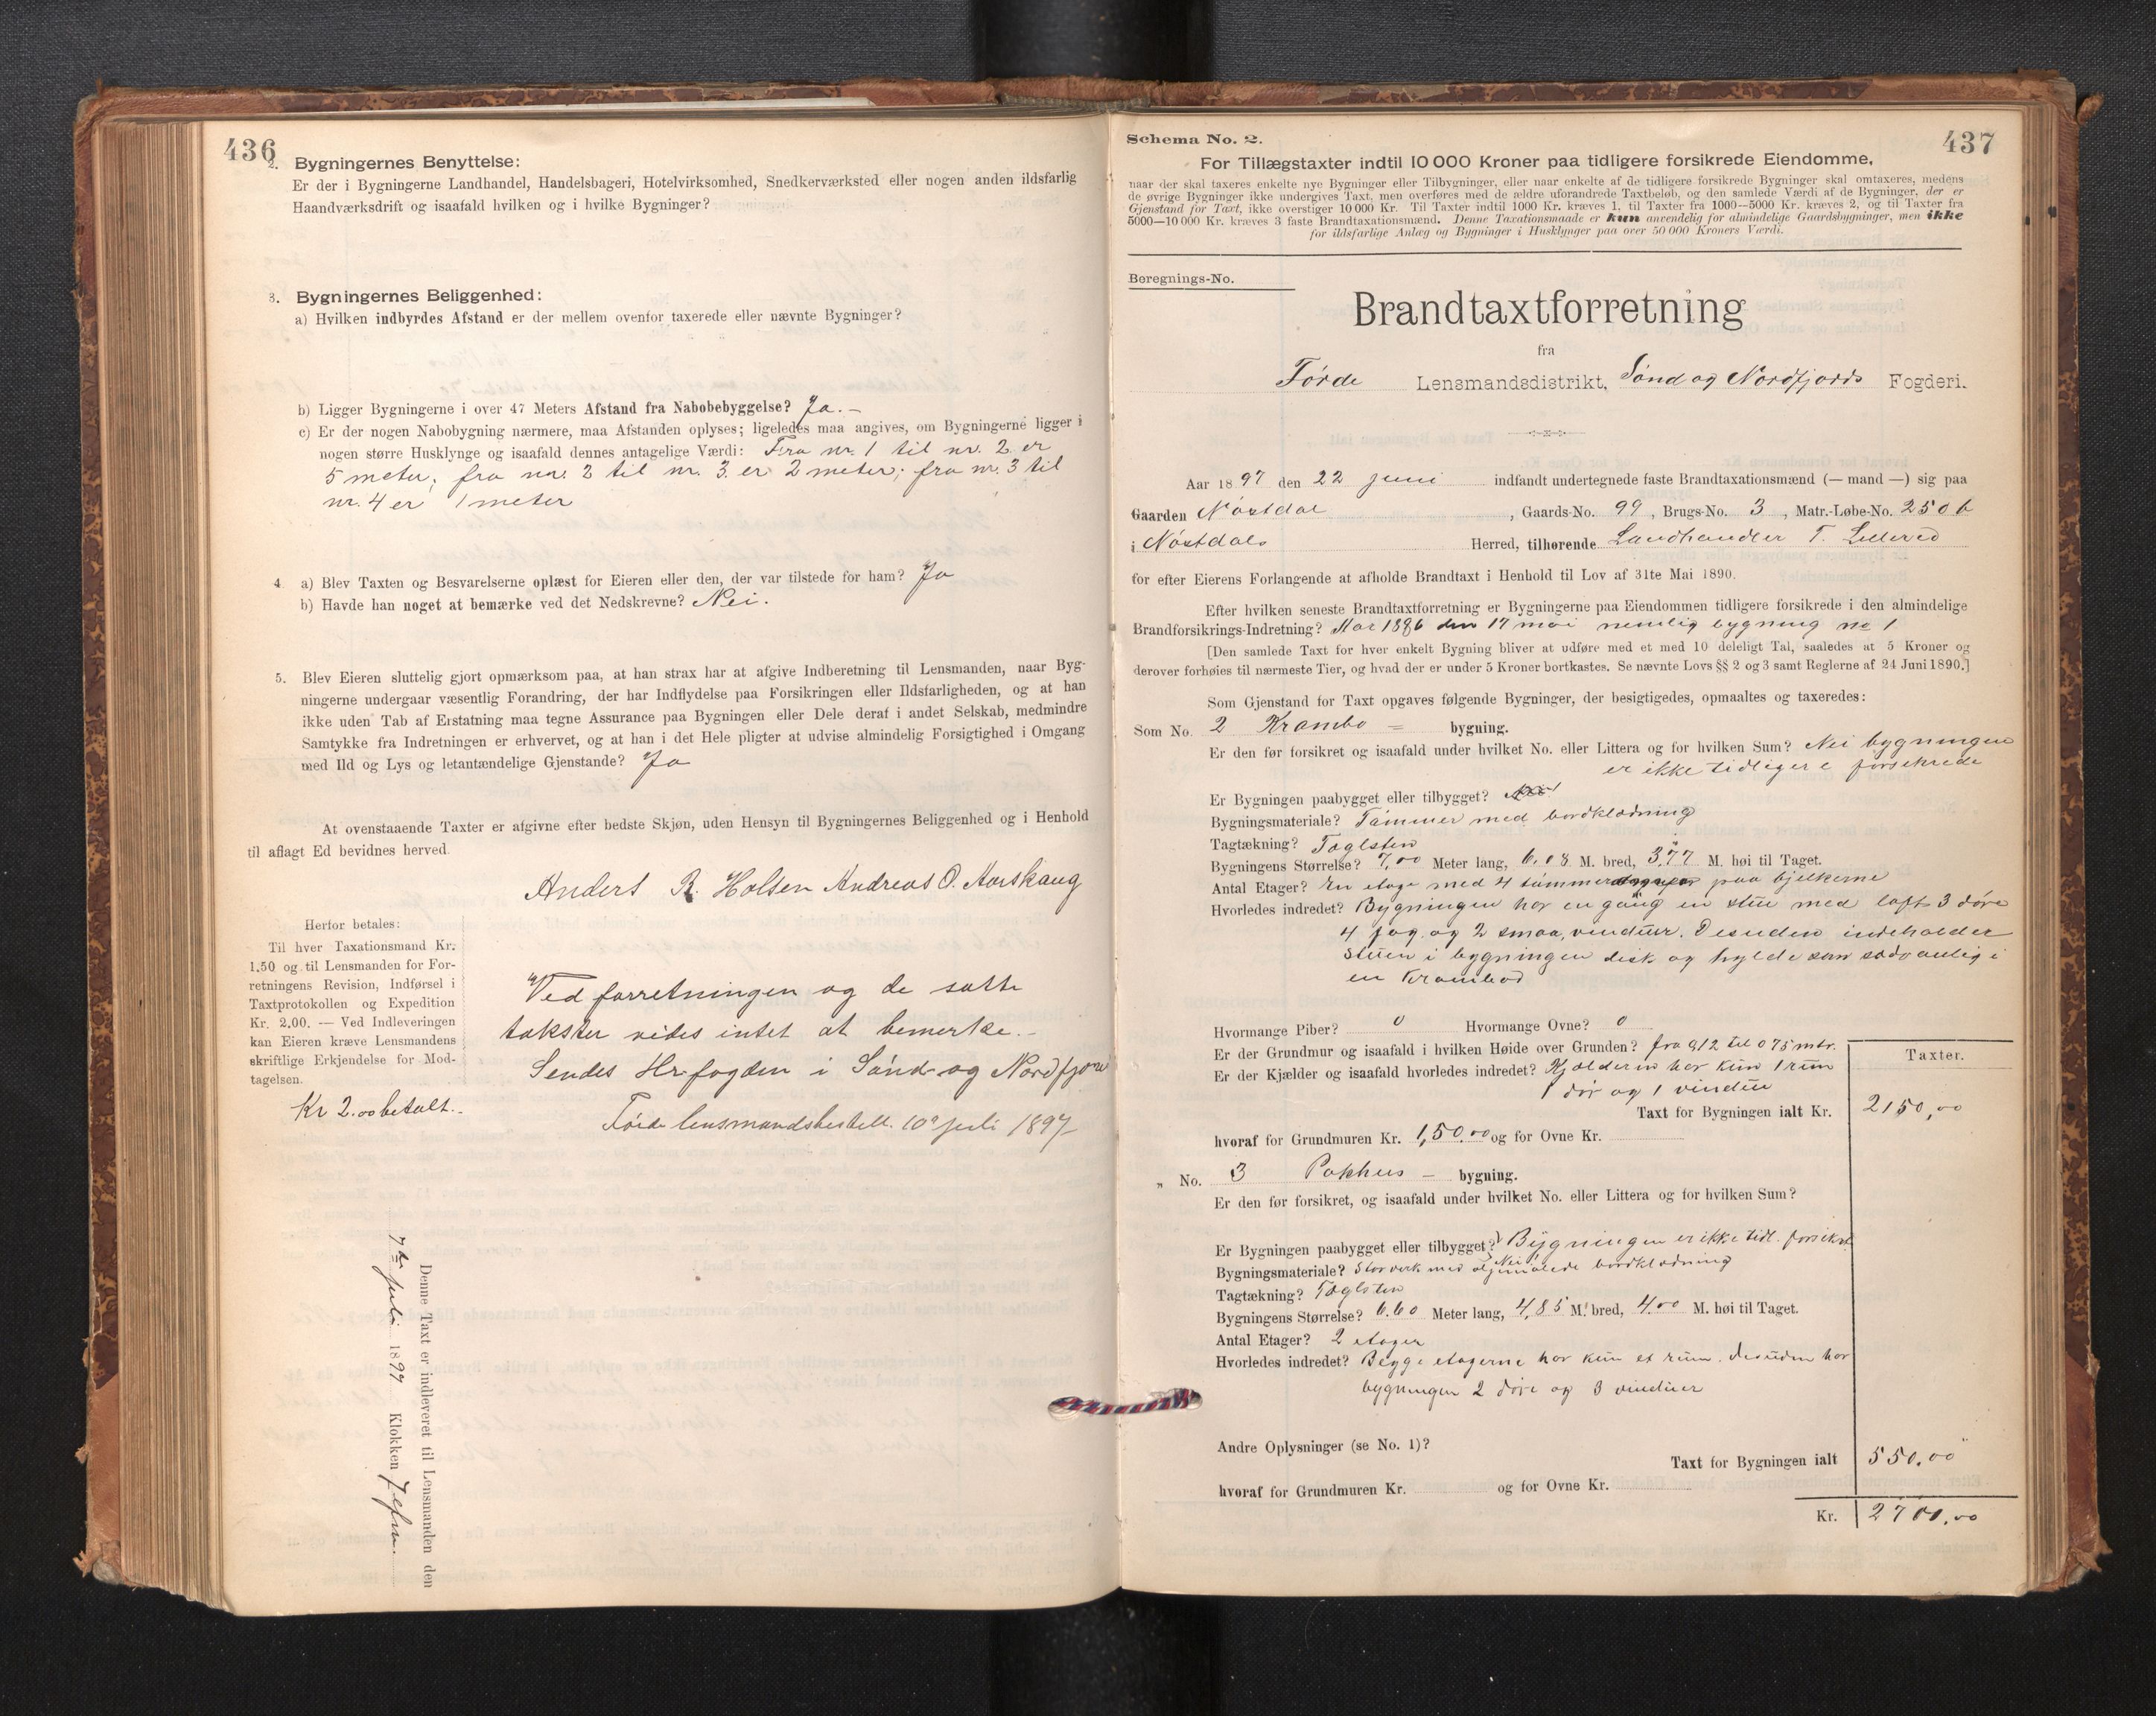 436
2. Bygningernes Benyttelse:
Er der i Bygningerne Landhandel, Handelsbageri, Hotelvirksomhed, Snedkerværksted eller nogen anden ildsfarlig
Haandværksdrift og isaafald hvilken og i hvilke Bygninger?
3. Bygningernes Beliggenhed:
a) Hvilken indbyrdes Afstand er der mellem ovenfor taxerede eller nævnte Bygninger?
b) Ligger Bygningerne i over 47 Meters Afstand fra Nabobebyggelse? Ja.-
c) Er der nogen Nabobygning nærmere, maa Afstanden oplyses; ligeledes maa angives, om Bygningerne ligger i
nogen større Husklynge og isaafald dennes antagelige Værdi: Fra nr. 1 til nr. 2 er
5 meter, fra nr. 2 til nr. 3 er 2 meter; fra nr. 3 til
nr. 4 er 1 meter
4. a) Blev Taxten og Besvarelserne oplæst for Eieren eller den, der var tilstede for ham? Ja
b) Havde han noget at bemærke ved det Nedskrevne? Nei.
5. Blev Eieren sluttelig gjort opmærksom paa, at han strax har at afgive Indberetning til Lensmanden, naar Byg-
ningerne undergaar væsentlig Forandring, der har Indflydelse paa Forsikringen eller Ildsfarligheden, og at han
ikke uden Tab af Erstatning maa tegne Assurance paa Bygningen eller Dele deraf i andet Selskab, medmindre
Samtykke fra Indretningen er erhvervet, og at han i det Hele pligter at udvise almindelig Forsigtighed i Omgang
med Ild og Lys og letantændelige Gjenstande? Ja
At ovenstaaende Taxter er afgivne efter bedste Skjøn, uden Hensyn til Bygningernes Beliggenhed og i Henhold
til aflagt Ed bevidnes herved.
Anders R. Holsen Andreas O. Aarskaug
Herfor betales:
Til hver Taxationsmand Kr.
1.50 og til Lensmanden for For-
retningens Revision, Indførsel i
Taxtprotokollen og Expedition
Kr. 2.00. — Ved Indleveringen
kan Eieren kræve Lensmandens
skriftlige Erkjendelse for Mod-
tagelsen.
Kr 2.00 betalt.-
Ved forretningen og de satte
takster vides intet at bemerke.-
Sendes Hr fogden i Sönd- og Nordfjord
Førde lensmandsbestill. 10 juli 1897
Denne Taxt er indleveret til Lensmanden den
7de juli 1897 Klokken 7 efm.
437
Schema No. 2.
For Tillægstaxter indtil 10 000 Kroner paa tidligere forsikrede Eiendomme,
naar der skal taxeres enkelte nye Bygninger eller Tilbygninger, eller naar enkelte af de tidligere forsikrede Bygninger skal omtaxeres, medens
de øvrige Bygninger ikke undergives Taxt, men overføres med de ældre uforandrede Taxtbeløb, og den samlede Værdi af de Bygninger, der er
Gjenstand for Taxt, ikke overstiger 10 000 Kr. Til Taxter indtil 1000 Kr. kræves 1, til Taxter fra 1000—5000 Kr. kræves 2, og til Taxter fra
5000—10 000 Kr. kræves 3 faste Brandtaxationsmænd. Denne Taxationsmaade er kun anvendelig for almindelige Gaardsbygninger, men ikke
for ildsfarlige Anlæg og Bygninger i Husklynger paa over 50 000 Kroners Værdi.
Beregnings-No.
Brandtaxtforretning
fra
Førde Lensmandsdistrikt, Sönd og Nordfjords Fogderi.
Aar 1897 den 22 juni indfandt undertegnede faste Brandtaxationsmænd (— mand —) sig paa
Gaarden Nøstdal, Gaards-No. 99, Brugs-No. 3, Matr.-Løbe-No. 250 b
i Nøstdals Herred, tilhørende Landhandler T. Lilleved
for efter Eierens Forlangende at afholde Brandtaxt i Henhold til Lov af 31te Mai 1890.
Efter hvilken seneste Brandtaxtforretning er Bygningerne paa Eiendommen tidligere forsikrede i den almindelige
Brandforsikrings-Indretning? Aar 1886 den 17 mai nemlig bygning no 1
[Den samlede Taxt for hver enkelt Bygning bliver at udføre med et med 10 deleligt Tal, saaledes at 5 Kroner og
derover forhøies til nærmeste Tier, og hvad der er under 5 Kroner bortkastes. Se nævnte Lovs §§ 2 og 3 samt Reglerne af 24 Juni 1890.]
Som Gjenstand for Taxt opgaves følgende Bygninger, der besigtigedes, opmaaltes og taxeredes:
Som No. 2 Krambo = bygning.
Er den før forsikret og isaafald under hvilket No. eller Littera og for hvilken Sum? Nei bygningen
er ikke tidligere forsikrede
Er Bygningen paabygget eller tilbygget? Nei
Bygningsmateriale? Tömmer med bordklædning
Tagtækning? Taglsten
Bygningens Størrelse? 7,00 Meter lang, 6.08 M. bred, 3,77 M. høi til Taget.
Antal Etager? En etage med 4 tömmer paa bjelkerne
Hvorledes indredet? Bygningen har en gang en stue med loft 3 døre
4 fag og 2 smaa vinduer. Desuden indeholder
stuen i bygningen disk og hylde som sædvanlig i
en krambod
Hvormange Piber? 0 Hvormange Ovne? 0
Er der Grundmur og isaafald i hvilken Høide over Grunden? fra 0,12 til 0,75 mtr.
Er der Kjælder og isaafald hvorledes indredet? Kjælderen har kun 1 rum
1 dør og 1 vindue
Taxter.
Taxt for Bygningen ialt Kr. 2150,00
hvoraf for Grundmuren Kr. 1,50.00 og for Ovne Kr.
„ No. 3 Pakhus - bygning.
Er den før forsikret, og isaafald under hvilket No. eller Littera og for hvilken Sum?
Er Bygningen paabygget eller tilbygget? Bygningen er ikke tidl. forsikret
Nei
Bygningsmateriale? Storverk med oljemalede bordklædning
Tagtækning? Taglsten
Bygningens Størrelse? 6.60 Meter lang, 4,85 M. bred, 4.00 M. høi til Taget.
Antal Etager? 2 etager
Hvorledes indredet? Begge etagerne har kun et rum. desuden har
bygningen 2 døre og 3 vinduer
Andre Oplysninger (se No. 1)?
Taxt for Bygningen ialt 550.00
hvoraf for Grundmuren Kr. og for Ovne Kr.
Kr. 2700.00